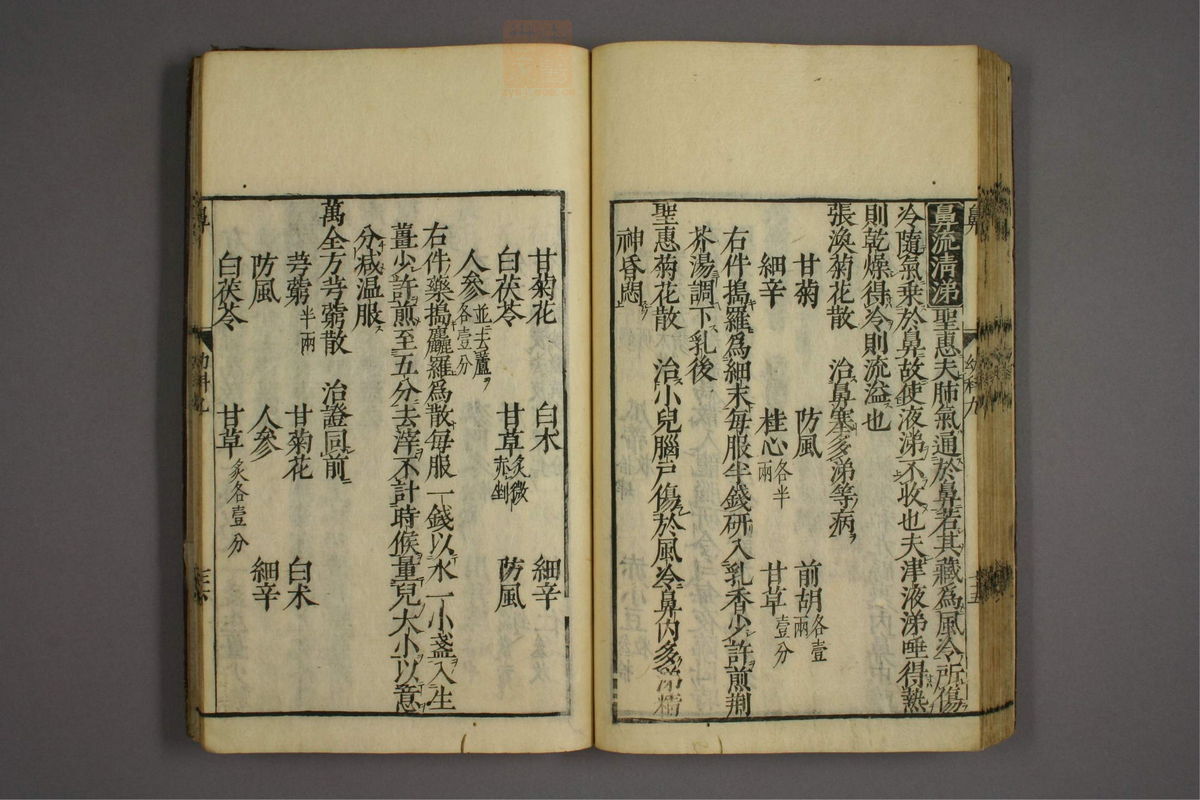 鼻流清涕 聖惠夫肺氣通於鼻若其藏為風冷所傷
冷隨氣乗於鼻故使液涕不收也夫津液涕唾得熱
則乾燥得冷則流溢也
張渙菊花散 治鼻塞多涕等病
甘菊 防風 前胡各壹兩
細辛 桂心各半兩 甘草壹分
右件搗羅為細末毎服半錢研入乳香少許煎荆
芥湯調下乳後
聖惠菊花散 治小兒腦戸傷於風冷鼻内多涕精
神昏悶
鼻
幼科九
三十五
甘菊花 白朮 細辛
白茯苓 甘草炙微赤剉 防風
人參並去蘆各壹分
右件藥搗麤羅為散毎服一錢以水一小盞入生
薑少許煎至五分去滓不計時候量兒大小以意
分減温服
萬全方芎藭散 治證同前
芎藭半兩 甘菊花 白朮
防風 人參 細辛
白茯苓 甘草炙各壹分
鼻
幼科九
三十六